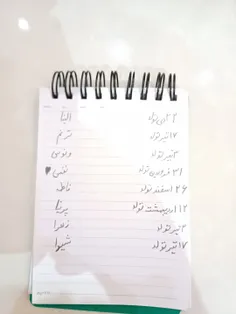 الینا ۲۲ دی تولد
ترنم ۱۷ تیر تولد
۳ تیر تولد
نفس ♥ ۳۱ فروردین تولد
۲۶ اسفند تولد
پریا ۱۲ اردیبهشت تولد
زهرا ۳ تیر تولد
شیوا ۱۷ تیر تولد